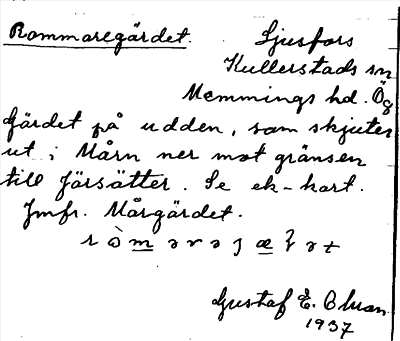 Rommaregärdet. Ljusfors
Kullerstads sn
Memmings hd. Ög
Gärdet på udden, som skjuter
ut i Mårn ner mot gränsen
till Järsätter. Se ek-kart.
Jmfr. Mårgärdet.
Gustaf E. Olsson
1937